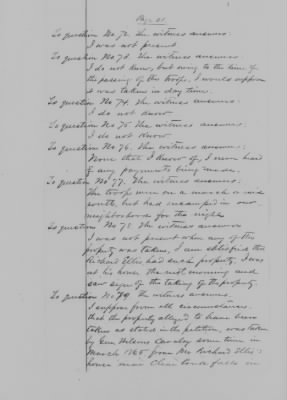 Page 21.
To question No 72. The witness answers:
I was not present
To question No 73. The witness answers:
I do not know, but owing to the time of
the passing of the troops, I would suppose
it was taken in day time.
To question No 74. The witness answers:
I do not know
To question No 75. The witness answers:
I do not know.
To question No 76. The witness answers:
None that I know of, I never heard
of any payments being made.
To question No 77. The witness answers:
The troops were on a march or raid
south, but had encamped in our
neighborhood for the night
To question No 78. The witness answers
I was not present when any of the
property was taken, I am satisfied that
Richard Ellis had such property. I was
at his house the next morning and
saw signs of the taking of the property.
To question No 79 The witness answers
I suppose from all circumstances
that the property alleged to have been
taken as stated in the petition, was taken
by Gen Wilsons Cavalry some time in
March 1865 from Mr Richard Ellis'
house near